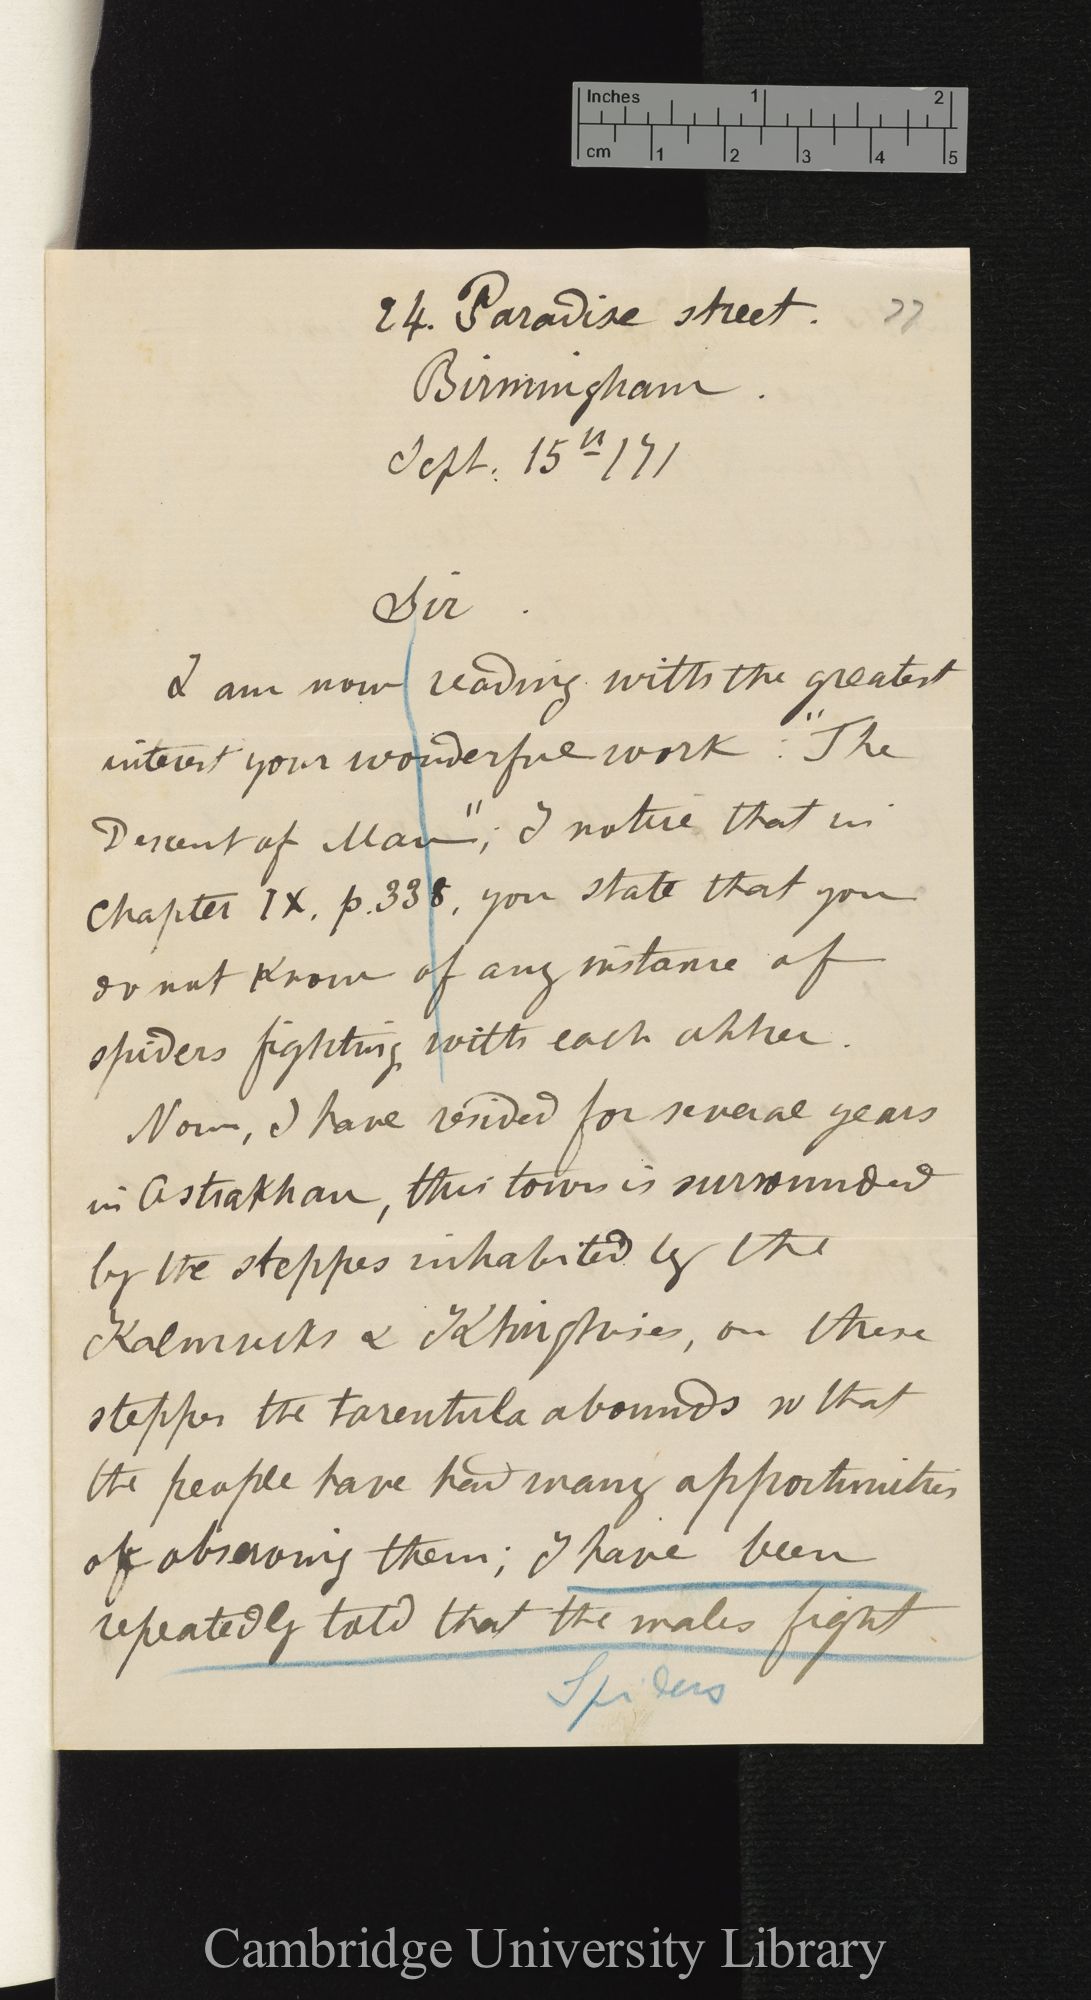 Inches 1 2
cm 1 2 3 4 5
24. Paradise street. 77
Birmingham.
Sept. 15th/71
Sir.
I am now reading with the greatest
interest your wonderful work: "The
Descent of Man"; I notice that in
Chapter IX, p.338, you state that you
do not know of any instance of
spiders fighting with each other.
Now, I have resided for several years
in Astrakhan, this town is surrounded
by the steppes inhabited by the
Kalmucks & Khirghises, on these
steppes the tarentula abounds so that
the people have had many opportunities
of observing them; I have been
repeatedly told that the males fight
Spiders
Cambridge University Library